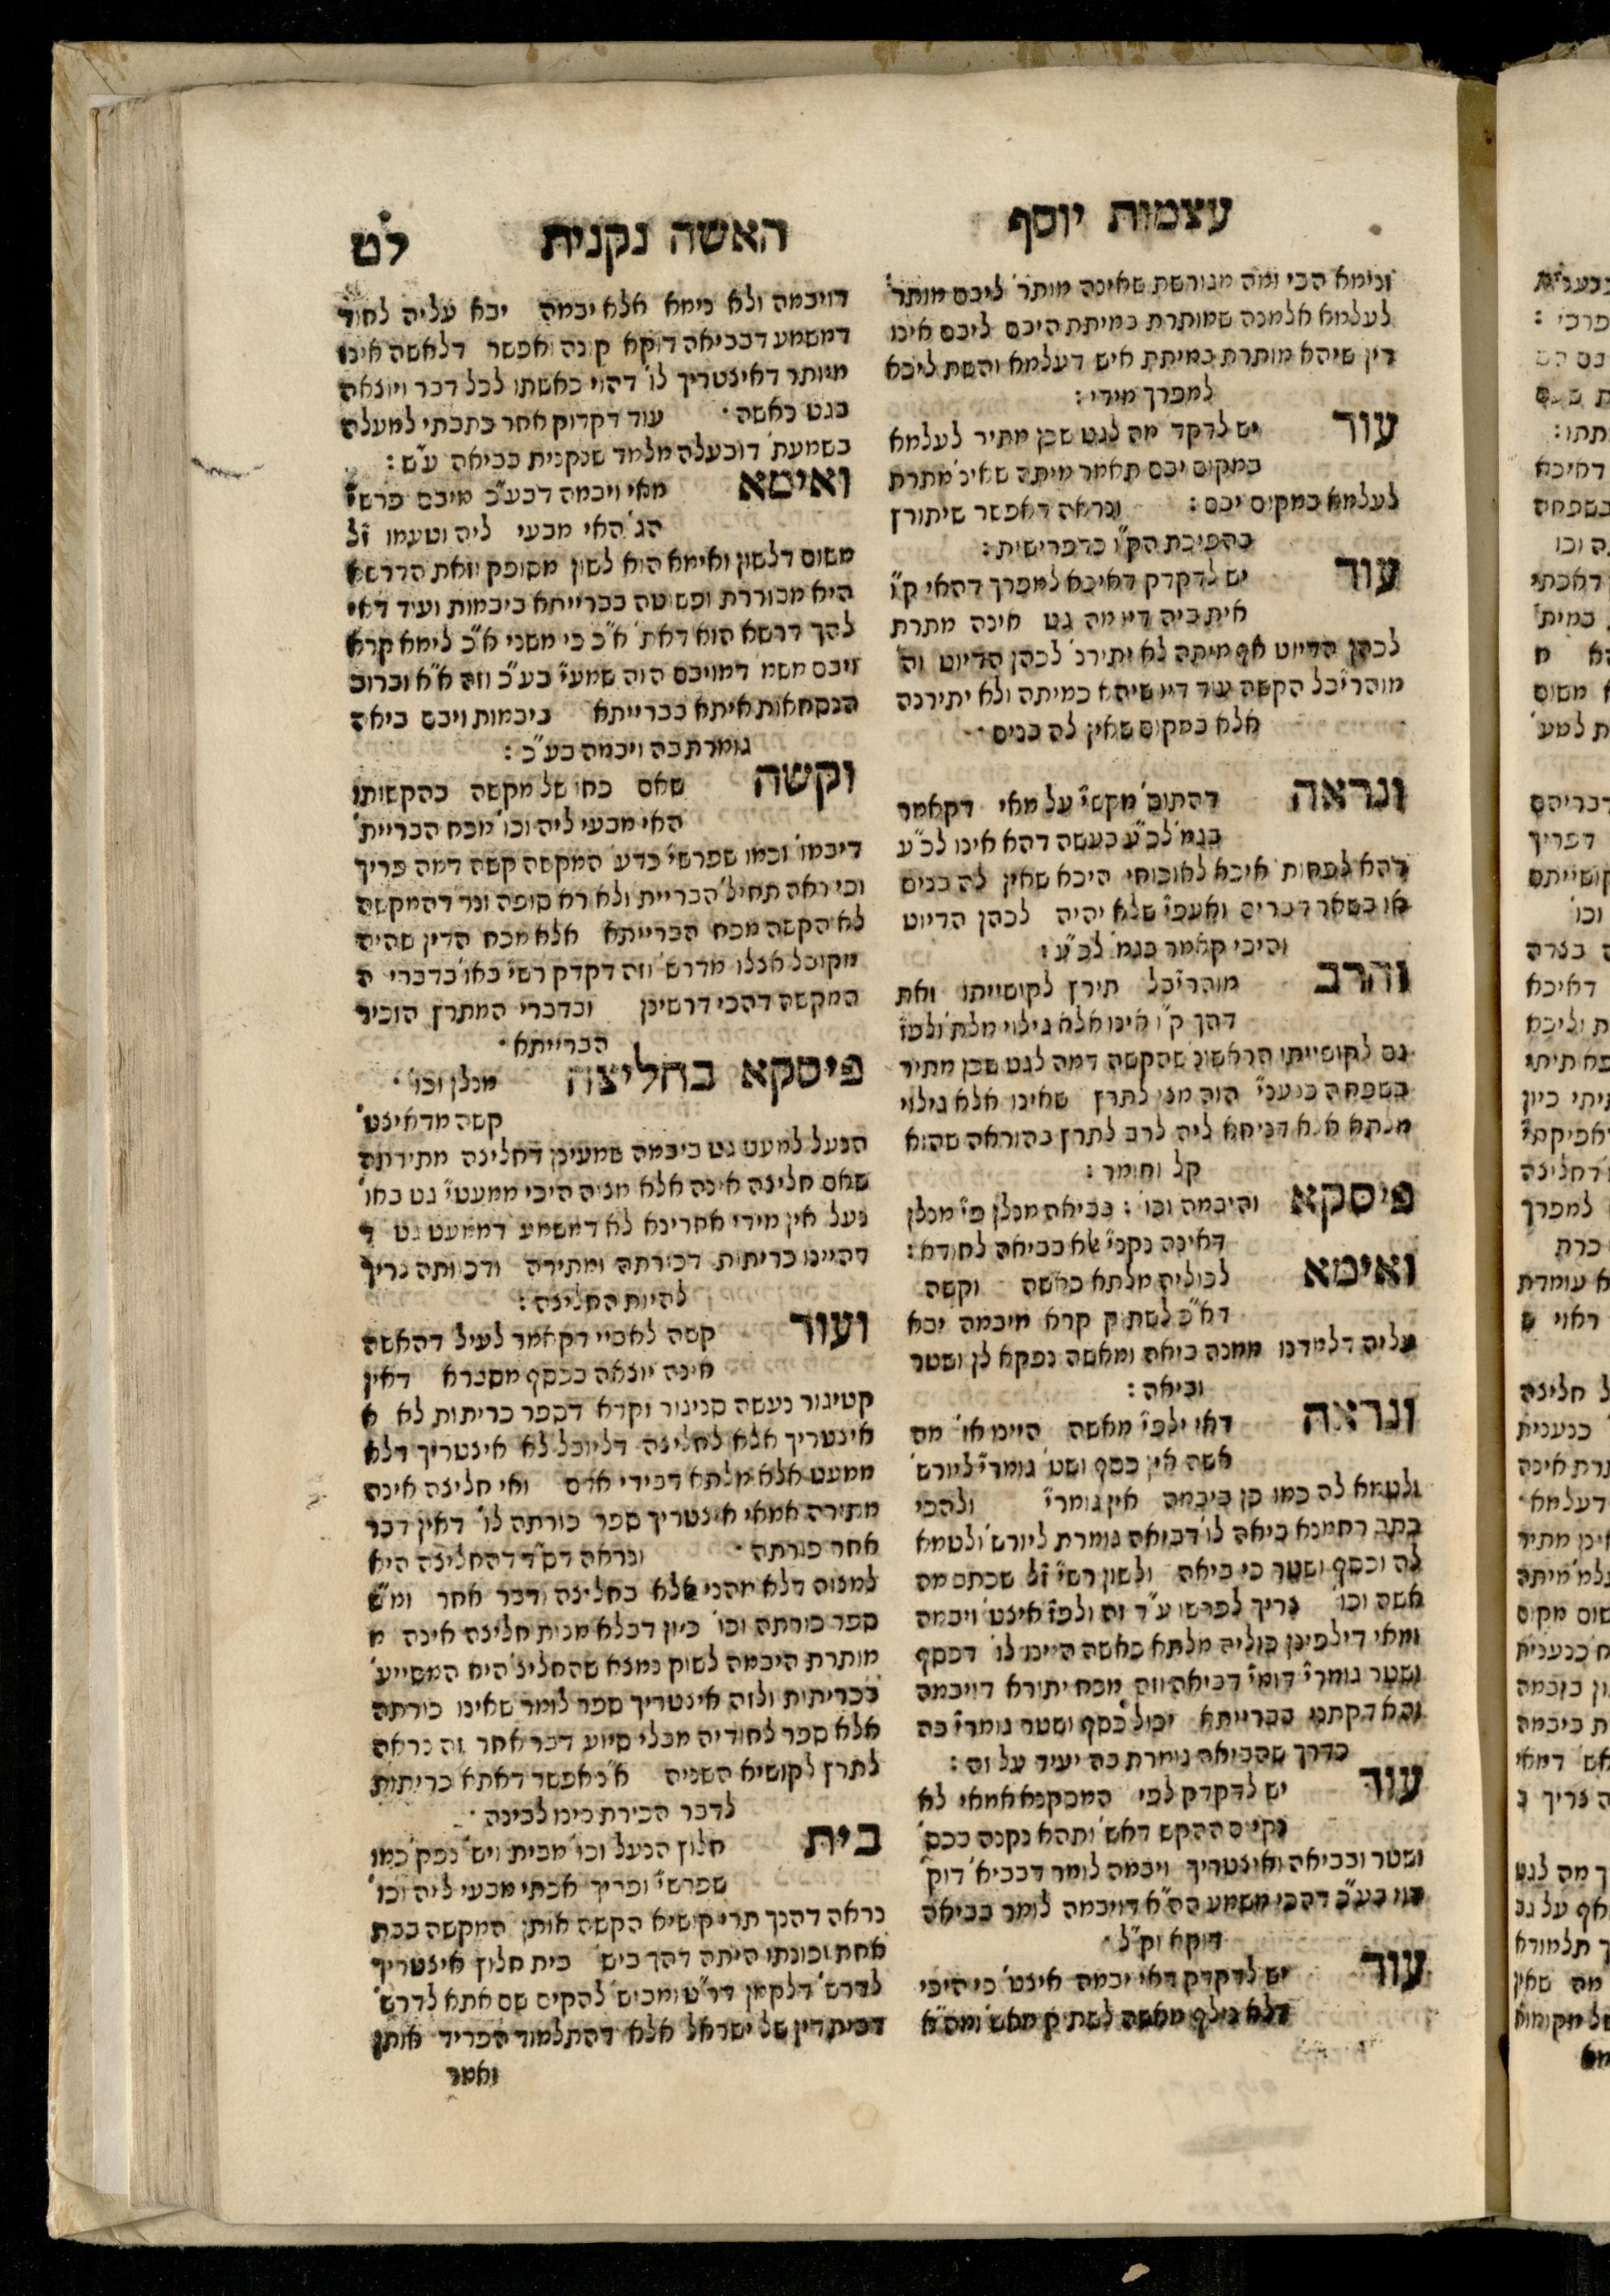 עצמות יוסף
האשה נקנית
לט
ונימא הכי ומה מגורשת שאינה מותר' ליבם מותר'
לעלמא אלמנה שמותרת במיתת היבם ליבם אינו
דין שיהא מותרת במיתת איש דעלמא והשת ליכא
למפרך מידי :
עוד יש לדקדק מה לגט שכן מתיר לעלמא
במקום יבם תאמר מיתה שאינ' מתרת
לעלמא במקום יבם : ונראה דאפשר שיתורץ
בהפיכת הק"ו כדפרישית :
עוד יש לדקדק דאיכא למפרך דהאי ק"ו
אית ביה דיו מה גט אינה מתרת
לכהן הדיוט אף מיתה לא יתירנ' לכהן הדיוט וה'
מוהריב"ל הקשה עוד דיו שיהא כמיתה ולא יתירנה
אלא במקום שאין לה בנים ·
ונראה דהתוס' מקשי' על מאי דקאמר
בגמ' לכ"ע בעשה דהא אינו לכ"ע
דהא לפחות איכא לאוכוחי היכא שאין לה בנים
או בשאר דברים ואעפ"י שלא יהיה לכהן הדיוט
והיכי קאמר בגמ' לכ"ע :
והרב מוהריב"ל תירץ לקושייתו זאת
דהך ק"ו אינו אלא גילוי מלת' ולפ"ז
גם לקושייתו הראשונ' שהקשה דמה לגט שכן מתיר
בשפחה כנענ"י הוה מצי לתרץ שאינו אלא גילוי
מלתא אלא דניחא ליה לרב לתרץ בהוראה שהוא
קל וחומר :
פיסקא והיבמה וכו' : בביאה מנלן פי' מנלן
דאינה נקני' אלא בביאה לחודא :
ואימא לכוליה מלתא כאשה וקשה
דא"כ לשתוק קרא מיבמה יבא
עליה דלמדנו ממנה ביאה ומאשה נפקא לן ושטר
וביאה :
ונראה דאי ילפי' מאשה היינו או' מה
אשה אין כסף ושט' גומרי' ליורש'
ולטמא לה כמו כן ביבמה אין גומרי' ולהכי
כתב רחמנא ביאה לו' דביאה גומרת ליורש' ולטמא
לה וכסף ושטר כי ביאה ולשון רש"י ז"ל שכתב מה
אשה וכו' צריך לפרשו ע"ד זה ולפ"ז איצט' ויבמה
ומאי דילפינן כוליה מלתא כאשה היינו לו' דכסף
ושטר גומרי' דומי' דביאה וזה מכח יתורא דויבמה
והא דקתני בברייתא יכול כסף ושטר גומרי' בה
כדרך שהביאה גומרת בה יעיד על זה :
עוד יש לדקדק לפי המסקנא אמאי לא
נקיים ההקש דאש' ותהא נקנה בכס'
ושטר ובביאה ואיצטריך ויבמה לומר דבביא' דוק'
הוי בע"כ דהכי משמע הה"א דויבמה לומר בביאה
דוקא וק"ל ·
עוד יש לדקדק דאי יבמה איצט' כי היכי
דלא נילף מאשה לשתוק מאש' ומה"א
דויבמה ולא נימא אלא יבמה יבא עליה לחוד
דמשמע דבביאה דוקא קונה ואפשר דלאשה אינו
מיותר דאיצטריך לו' דהוי כאשתו לכל דבר ויוצאה
בגט כאשה · עוד דקדוק אחר כתבתי למעלה
בשמעת' דובעלה מלמד שנקנית בביאה ע"ש :
ואימא מאי ויבמה דבע"כ מיבם פרש"י
הג' האי מבעי ליה וטעמו ז"ל
משום דלשון ואימא הוא לשון מסופק וזאת הדרשא
היא מבוררת ופשוטה בברייתא ביבמות ועוד דאי
להך דרשא הוא דאת' א"כ כי משני א"כ לימא קרא
ויבם משמ' דמויבם הוה שמעי' בע"כ וזה א"א וברוב
הנסחאות איתא בברייתא ביבמות ויבם ביאה
גומרת בה ויבמה בע"כ :
וקשה שאם כחו של מקשה בהקשותו
האי מבעי ליה וכו' מכח הבריית'
דיבמו' וכמו שפרש"י בדע' המקשה קשה דמה פריך
וכי ראה תחיל' הברייתא ולא רא' סופה וצ"ל דהמקשה
לא הקשה מכח הברייתא אלא מכח הדין שהיה
מקובל אצלו מדרש' וזה דקדק רש"י באו' בדברי ה
המקשה דהכי דרשינן ובדברי המתרץ הזכיר
הברייתא ·
פיסקא בחליצה מנלן וכו' ·
קשה מדאיצט'
הנעל למעט גט ביבמה שמעינן דחליצה מתירתה
שאם חליצה אינה אלא מצוה היכי ממעטי' גט באו'
נעל אין מידי אחרינא לא דמשמע דממעט גט ד
דהיינו כריתות דכורתה ומתירה ודכוותה צריך
להיות החליצה :
ועוד קשה לאביי דקאמר לעיל דהאשה
אינה יוצאה בכסף מסברא דאין
קטיגור נעשה סניגור וקרא דספר כריתות לא א
איצטריך אלא לחליצה דליוכל לא איצטריך דלא
ממעט אלא מלתא דבידי אדם ואי חליצה אינה
מתירה אמאי איצטריך ספר כורתה לו' דאין דבר
אחר כורתה · ונראה דס"ד דהחליצה היא
למצוה דלא מהני אלא בחליצה ודבר אחר ומ"ש
ספר כורתה וכו' כיון דבלא מצות חליצה אינה מ
מותרת היבמה לשוק נמצא שהחליצ' היא המסייע'
בכריתות ולזה איצטריך ספר לומר שאינו כורתה
אלא ספר לחודיה מבלי סיוע דבר אחר זה נראה
לתרץ לקושיא השניה א"נ אפשר דאתא כריתות
לדבר הכורת בינו לבינה ·
בית חלוץ הנעל וכו' מבית ויש' נפק' כמו
שפרש"י ופריך אכתי מבעי ליה וכו'
נראה דהנך תרי קושיא הקשה אותן המקשה בבת
אחת וכונתו היתה דהך ביש' בית חלוץ איצטריך
לדרש' דלקמן דר"ט ומביש' להקים שם אתא לדרש'
דבית דין של ישראל אלא דהתלמוד הפריד אותן
ואמר